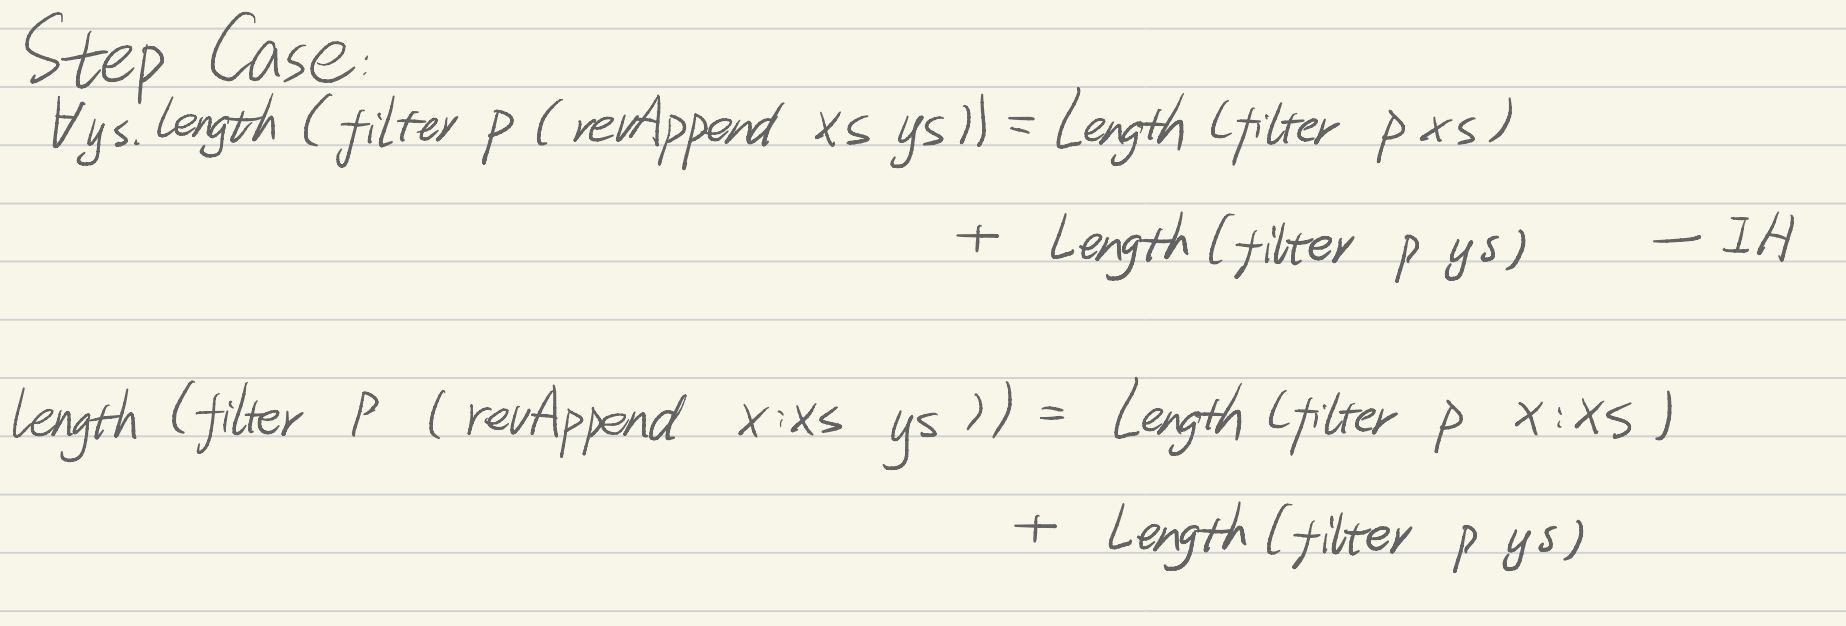 Step Case:
∀ys. length (filter p (revAppend xs ys)) = Length (filter p xs)
+ Length (filter p ys) - IH
length (filter p (revAppend x:xs ys)) = Length (filter p x:xs)
+ Length (filter p ys)